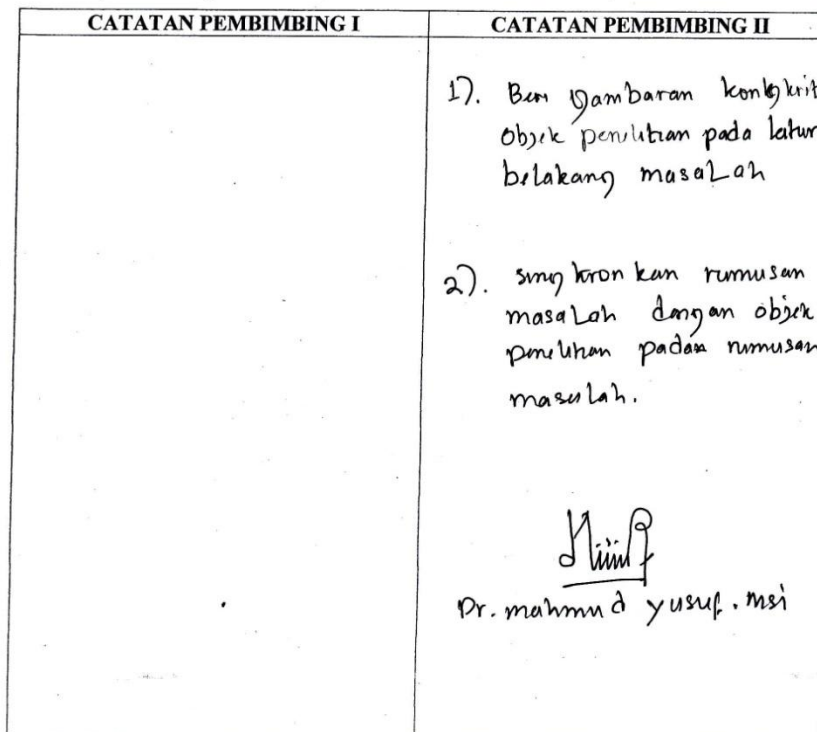 CATATAN PEMBIMBING I
CATATAN PEMBIMBING II
1). Beri gambaran kongkrit
objek penelitian pada latar
belakang masalah
2). singkronkan rumusan
masalah dengan objek
penelitian pada rumusan
masalah.
Dr. mahmud yusuf. msi